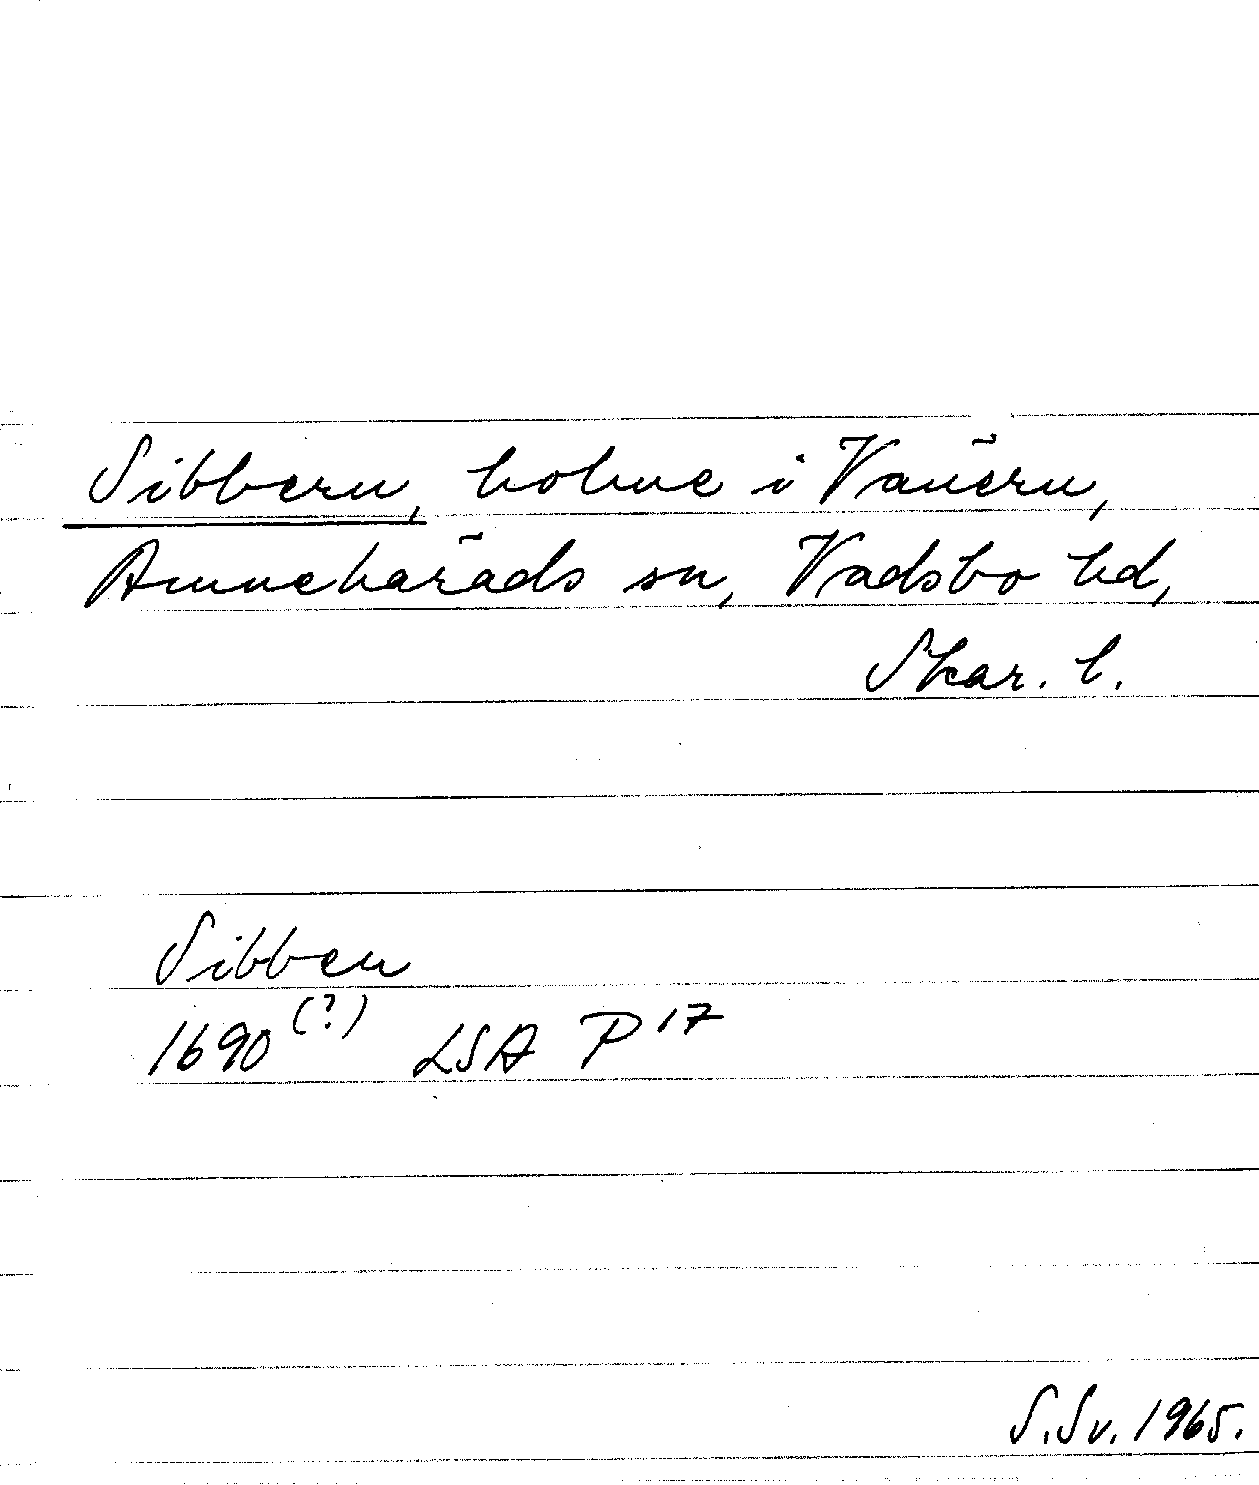 Sibbern, holme i Vänern,
Amnehärads sn, Vadsbo hd,
Skar. l.
Sibben
1690 (?) LSA P 17
S.Sv. 1965.